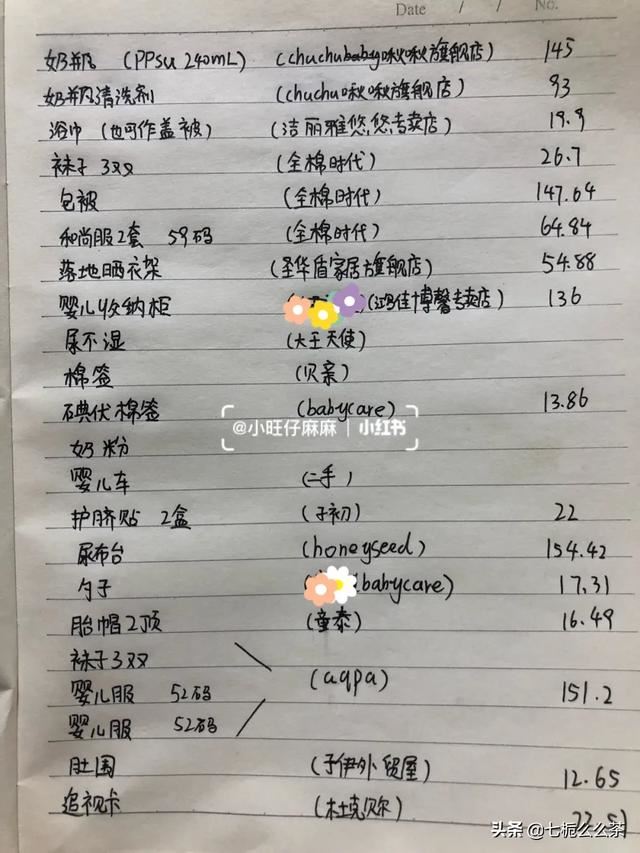 Date / / No.
奶瓶 (PPsu 240mL) (chuchubaby啾啾旗舰店) 145
奶瓶清洗剂 (chuchu啾啾旗舰店) 93
浴巾 (也可作盖被) (洁丽雅悠悠专卖店) 19.9
袜子 3双 (全棉时代) 26.7
包被 (全棉时代) 147.64
和尚服2套 59码 (全棉时代) 64.84
落地晒衣架 (圣华盾家居旗舰店) 54.88
婴儿收纳柜 (鸿佳博馨专卖店) 136
尿不湿 (大王天使)
棉签 (贝亲)
碘伏棉签 (babycare) 13.86
@小旺仔麻麻 | 小红书
奶粉
婴儿车 (二手)
护脐贴 2盒 (子初) 22
尿布台 (honeyseed) 154.42
勺子 (babycare) 17.31
胎帽2顶 (童泰) 16.49
袜子3双
(aqpa) 151.2
婴儿服 52码
婴儿服 52码
肚围 (子伊外贸屋) 12.65
追视卡 (杜克贝尔) 22.51
头条 @七栀么么茶